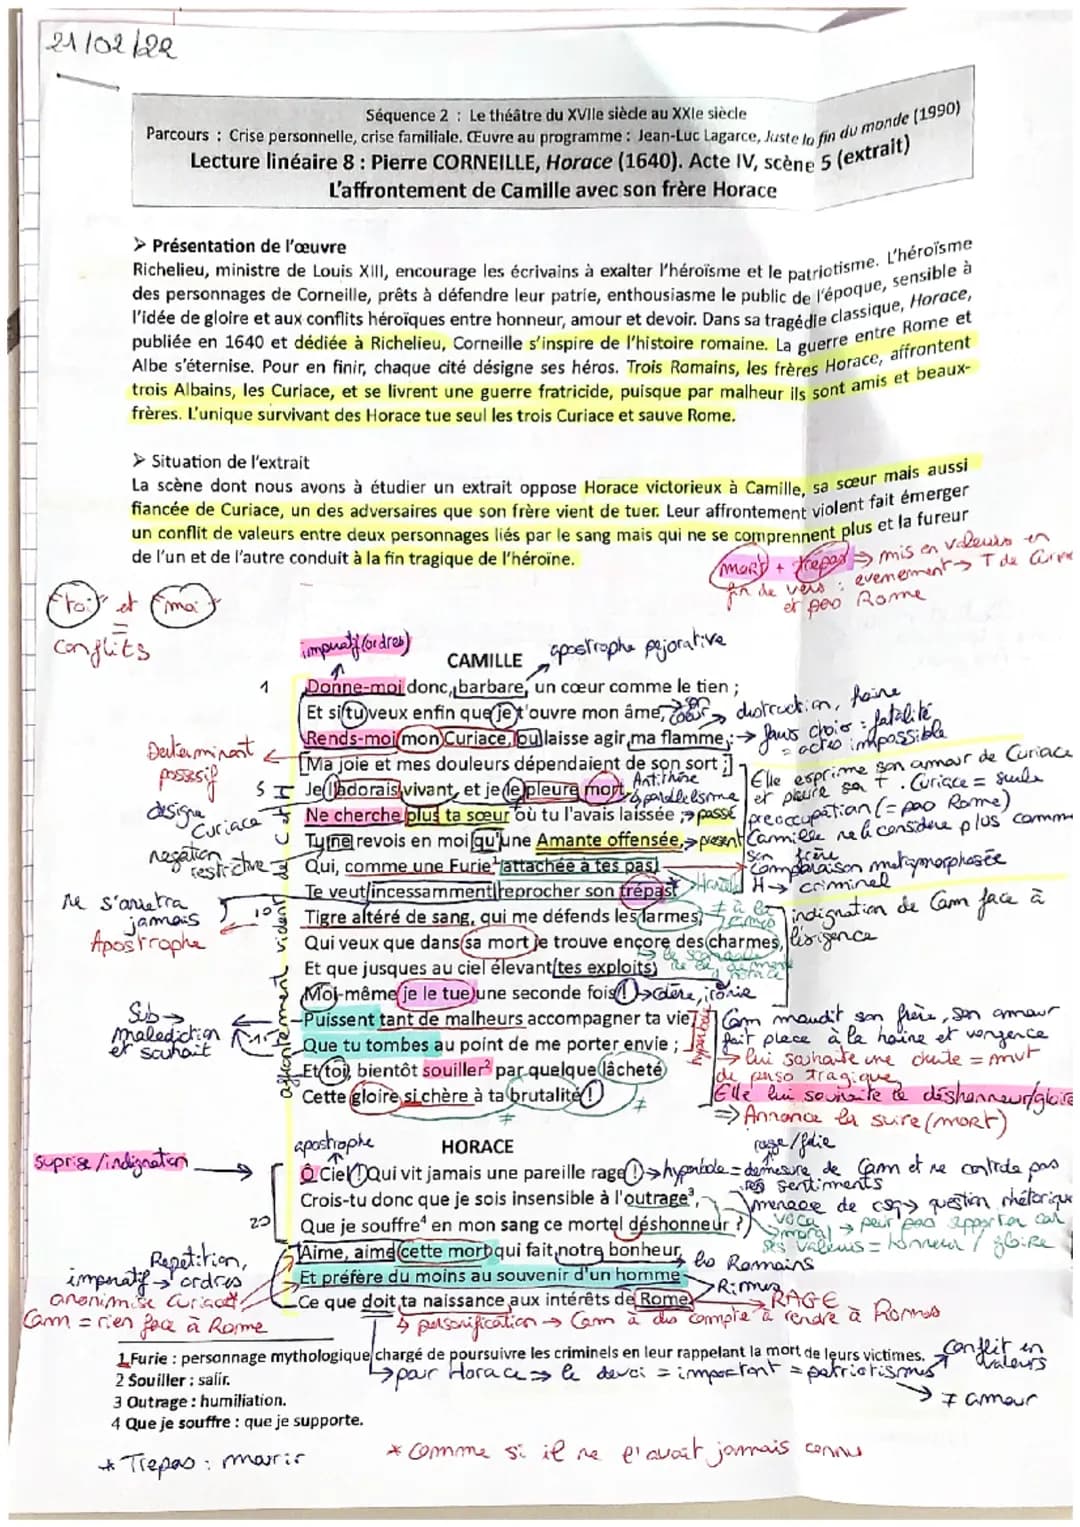 21/02/22
Séquence 2 : Le théâtre du XVIIe siècle au XXIe siècle
Parcours : Crise personnelle, crise familiale. Œuvre au programme : Jean-Luc Lagarce, Juste la fin du monde (1990)
Lecture linéaire 8 : Pierre CORNEILLE, Horace (1640). Acte IV, scène 5 (extrait)
L'affrontement de Camille avec son frère Horace
➤ Présentation de l'œuvre
Richelieu, ministre de Louis XIII, encourage les écrivains à exalter l'héroïsme et le patriotisme. L'héroïsme
des personnages de Corneille, prêts à défendre leur patrie, enthousiasme le public de l'époque, sensible à
l'idée de gloire et aux conflits héroïques entre honneur, amour et devoir. Dans sa tragédie classique, Horace,
publiée en 1640 et dédiée à Richelieu, Corneille s'inspire de l'histoire romaine. La guerre entre Rome et
Albe s'éternise. Pour en finir, chaque cité désigne ses héros. Trois Romains, les frères Horace, affrontent
trois Albains, les Curiace, et se livrent une guerre fratricide, puisque par malheur ils sont amis et beaux-
frères. L'unique survivant des Horace tue seul les trois Curiace et sauve Rome.
➤ Situation de l'extrait
La scène dont nous avons à étudier un extrait oppose Horace victorieux à Camille, sa sœur mais aussi
fiancée de Curiace, un des adversaires que son frère vient de tuer. Leur affrontement violent fait émerger
un conflit de valeurs entre deux personnages liés par le sang mais qui ne se comprennent plus et la fureur
de l'un et de l'autre conduit à la fin tragique de l'héroïne.
mort + trepas → mis en valeurs en
fin de vers : evenement → T de
et pas Rome
"toi" et "moi"
=
conflits
imperatif (ordres)
apostrophe pejorative
CAMILLE
1 Donne-moi donc, barbare, un cœur comme le tien ;
Et si tu veux enfin que je t'ouvre mon âme,
son cœur → destruction, haine
Rends-moi mon Curiace, ou laisse agir ma flamme ;
→ faux choix : fatalité
= actes impossible
Determinant
possesif
designe
Curiace
Ma joie et mes douleurs dépendaient de son sort ;
5 Je l'adorais vivant, et je le pleure mort.
Antithèse
↳ parallelisme
Elle exprime son amour de Curiace
et pleure sa T. Curiace = seule
preoccupation (= pas Rome)
Ne cherche plus ta sœur où tu l'avais laissée ;
→ passé
Tu ne revois en moi qu'une Amante offensée,
→ present
Camille ne le considere plus comme
son frère
negation
restrictive
Qui, comme une Furie¹ attachée à tes pas,
Comparaison metamorphosée
H → criminel
Te veut incessamment reprocher son trépas.
→ Harcèle
ne s'arretra
jamais
Apostrophe
10 Tigre altéré de sang, qui me défends les larmes,
≠ à la
indignation de Cam face à
l'exigence
Qui veux que dans sa mort je trouve encore des charmes,
Et que jusques au ciel élevant tes exploits,
Moi-même je le tue une seconde fois !
→ colère, ironie
affrontement vident
Sub →
malediction
et souhait
Puissent tant de malheurs accompagner ta vie,
15 Que tu tombes au point de me porter envie ;
Et toi, bientôt souiller² par quelque lâcheté
Cette gloire si chère à ta brutalité !
≠
hyperbole
Cam maudit son frère, son amour
fait place à la haine et vengence
→ lui souhaite une chute = mvt
de perso tragique
Elle lui souhaite le déshonneur/gloire
⇒ Annonce la suire (mort)
apostrophe
HORACE
rage/folie
suprise/indignation
Ô Ciel ! Qui vit jamais une pareille rage !
→ hyperbole = demesure de Cam et ne controle pas
ses sentiments
Crois-tu donc que je sois insensible à l'outrage³,
menace de csq → question rhétorique
20 Que je souffre⁴ en mon sang ce mortel déshonneur ?
voca
moral → peut pas apporter car
ses valeurs = honneur / gloire
Aime, aime cette mort qui fait notre bonheur,
→ les Romains
Et préfère du moins au souvenir d'un homme
Ce que doit ta naissance aux intérêts de Rome.
→ Rimes
→ RAGE
Repetition,
imperatif → ordres
anonimise Curiace*
Cam = rien face à Rome
↳ personification → Cam à des compte à rendre à Romes
1 Furie : personnage mythologique chargé de poursuivre les criminels en leur rappelant la mort de leurs victimes.
2 Souiller : salir.
3 Outrage : humiliation.
4 Que je souffre : que je supporte.
↳ pour Horace ⇒ le devoi = important = patriotismes
→ conflit en
valeurs
→ ≠ amour
* Trepas : mourir
* comme si il ne l'avait jamais connu